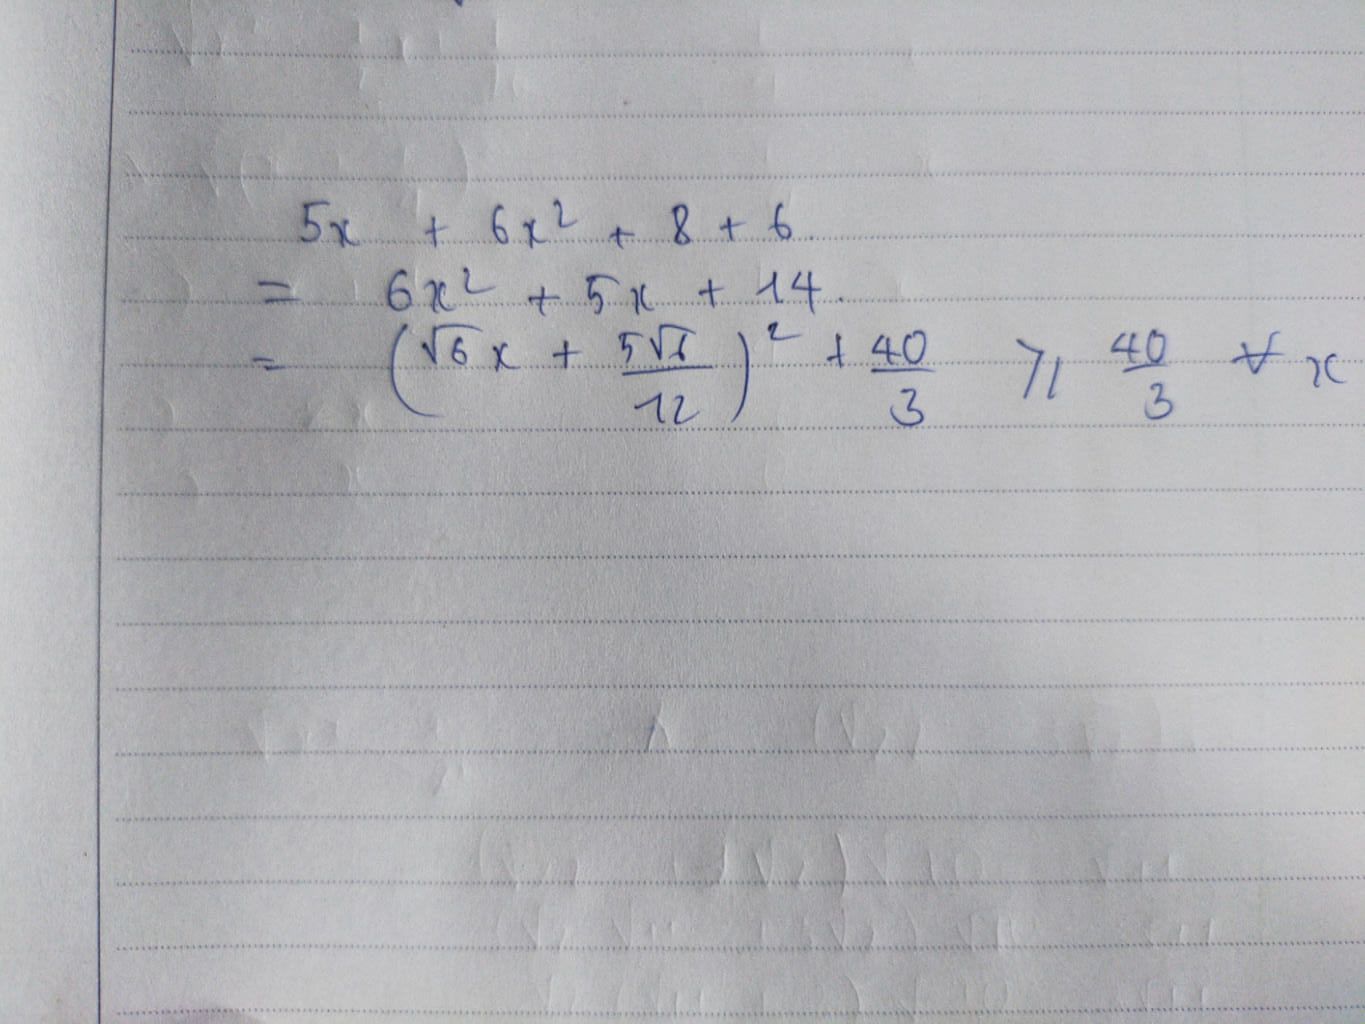 5x + 6x² + 8 + 6.
= 6x² + 5x + 14.
= (√6x + 5√6/12)² + 40/3 ⩾ 40/3 ∀x